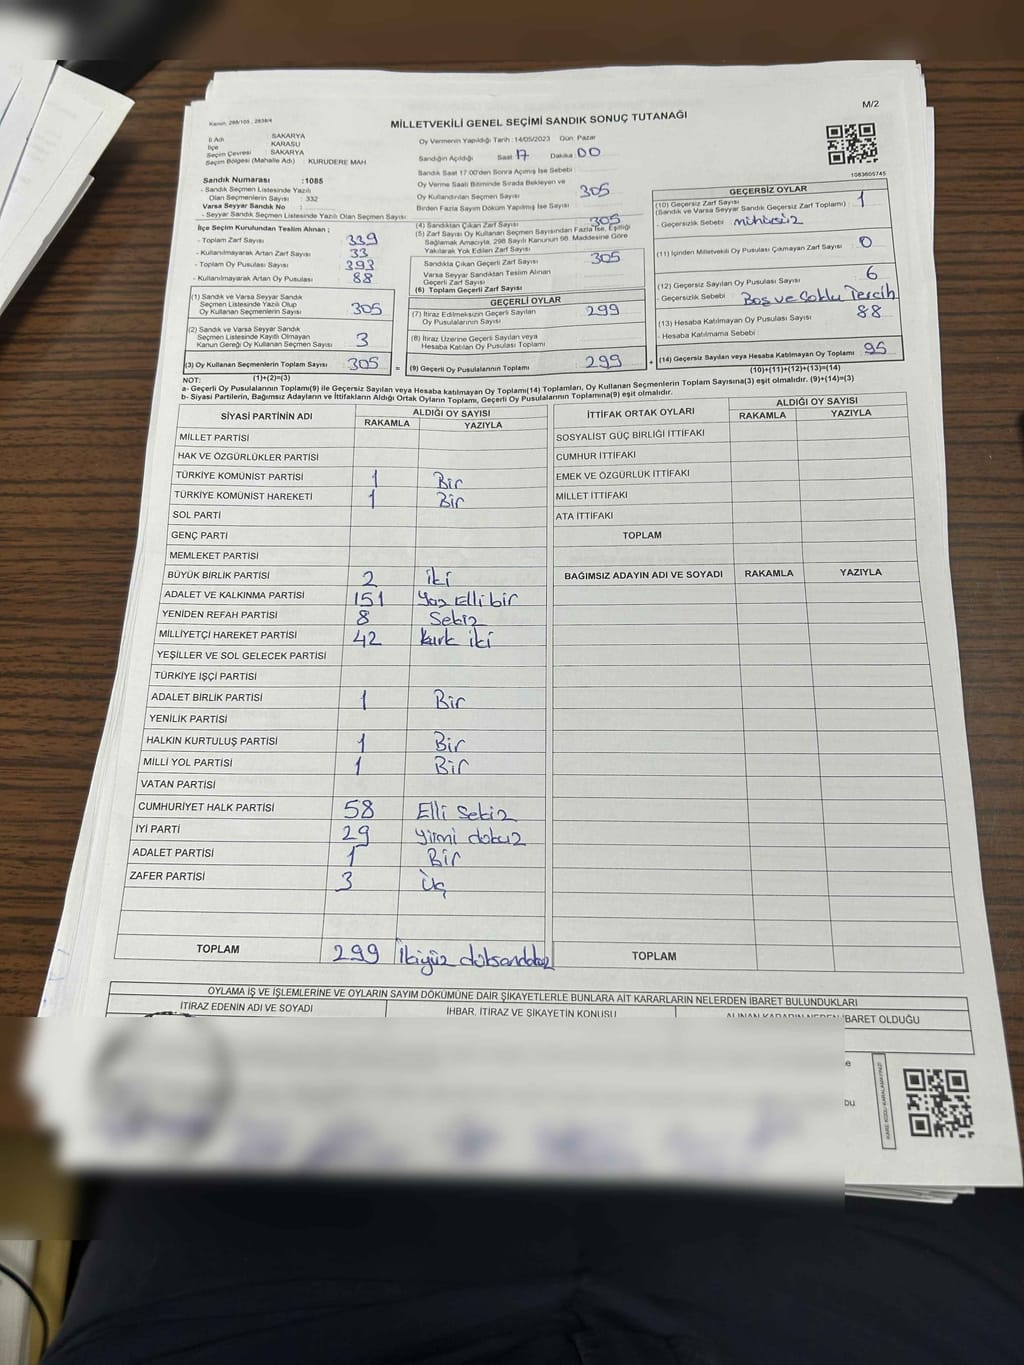 Kanun, 298/105 , 2839/4
M/2
MİLLETVEKİLİ GENEL SEÇİMİ SANDIK SONUÇ TUTANAĞI
İl Adı : SAKARYA
İlçe KARASU
Seçim Çevresi : SAKARYA
Seçim Bölgesi (Mahalle Adı) : KURUDERE MAH.
Oy Vermenin Yapıldığı Tarih :14/05/2023 Gün: Pazar
Sandığın Açıldığı Saat 17 Dakika 00
Sandık Saat 17:00'den Sonra Açılmış İse Sebebi :
Oy Verme Saati Bitiminde Sırada Bekleyen ve
Oy Kullandırılan Seçmen Sayısı 305
Birden Fazla Sayım Döküm Yapılmış İse Sayısı
1083605745
Sandık Numarası :1085
- Sandık Seçmen Listesinde Yazılı
Olan Seçmenlerin Sayısı : 332
Varsa Seyyar Sandık No :
- Seyyar Sandık Seçmen Listesinde Yazılı Olan Seçmen Sayısı
İlçe Seçim Kurulundan Teslim Alınan ;
- Toplam Zarf Sayısı 339
- Kullanılmayarak Artan Zarf Sayısı 33
- Toplam Oy Pusulası Sayısı 393
- Kullanılmayarak Artan Oy Pusulası 88
(1) Sandık ve Varsa Seyyar Sandık
Seçmen Listesinde Yazılı Olup
Oy Kullanan Seçmenlerin Sayısı 305
(2) Sandık ve Varsa Seyyar Sandık
Seçmen Listesinde Kayıtlı Olmayan
Kanun Gereği Oy Kullanan Seçmen Sayısı 3
(3) Oy Kullanan Seçmenlerin Toplam Sayısı 305
(1)+(2)=(3)
(4) Sandıktan Çıkan Zarf Sayısı 305
(5) Zarf Sayısı Oy Kullanan Seçmen Sayısından Fazla İse, Eşitliği
Sağlamak Amacıyla, 298 Sayılı Kanunun 98. Maddesine Göre
Yakılarak Yok Edilen Zarf Sayısı
Sandıkta Çıkan Geçerli Zarf Sayısı 305
Varsa Seyyar Sandıktan Teslim Alınan
Geçerli Zarf Sayısı
(6) Toplam Geçerli Zarf Sayısı
GEÇERLİ OYLAR
(7) İtiraz Edilmeksizin Geçerli Sayılan
Oy Pusulalarının Sayısı 299
(8) İtiraz Üzerine Geçerli Sayılan veya
Hesaba Katılan Oy Pusulası Toplamı
= (9) Geçerli Oy Pusulalarının Toplamı 299 +
GEÇERSİZ OYLAR
(10) Geçersiz Zarf Sayısı
(Sandık ve Varsa Seyyar Sandık Geçersiz Zarf Toplamı) : 1
- Geçersizlik Sebebi mühürsüz
(11) İçinden Milletvekili Oy Pusulası Çıkmayan Zarf Sayısı 0
(12) Geçersiz Sayılan Oy Pusulası Sayısı 6
- Geçersizlik Sebebi Boş ve Çoklu Tercih
(13) Hesaba Katılmayan Oy Pusulası Sayısı 88
- Hesaba Katılmama Sebebi :
(14) Geçersiz Sayılan veya Hesaba Katılmayan Oy Toplamı 95
(10)+(11)+(12)+(13)=(14)
NOT:
a- Geçerli Oy Pusulalarının Toplamı(9) ile Geçersiz Sayılan veya Hesaba katılmayan Oy Toplamı(14) Toplamları, Oy Kullanan Seçmenlerin Toplam Sayısına(3) eşit olmalıdır. (9)+(14)=(3)
b- Siyasi Partilerin, Bağımsız Adayların ve İttifakların Aldığı Ortak Oyların Toplamı, Geçerli Oy Pusulalarının Toplamına(9) eşit olmalıdır.
SİYASİ PARTİNİN ADI ALDIĞI OY SAYISI
RAKAMLA YAZIYLA
MİLLET PARTİSİ
HAK VE ÖZGÜRLÜKLER PARTİSİ
TÜRKİYE KOMÜNİST PARTİSİ 1 Bir
TÜRKİYE KOMÜNİST HAREKETİ 1 Bir
SOL PARTİ
GENÇ PARTİ
MEMLEKET PARTİSİ
BÜYÜK BİRLİK PARTİSİ 2 iki
ADALET VE KALKINMA PARTİSİ 151 Yüz Elli bir
YENİDEN REFAH PARTİSİ 8 Sekiz
MİLLİYETÇİ HAREKET PARTİSİ 42 kırk iki
YEŞİLLER VE SOL GELECEK PARTİSİ
TÜRKİYE İŞÇİ PARTİSİ
ADALET BİRLİK PARTİSİ 1 Bir
YENİLİK PARTİSİ
HALKIN KURTULUŞ PARTİSİ 1 Bir
MİLLİ YOL PARTİSİ 1 Bir
VATAN PARTİSİ
CUMHURİYET HALK PARTİSİ 58 Elli Sekiz
İYİ PARTİ 29 yirmi dokuz
ADALET PARTİSİ 1 Bir
ZAFER PARTİSİ 3 Üç
TOPLAM 299 İkiyüz doksandokuz
İTTİFAK ORTAK OYLARI ALDIĞI OY SAYISI
RAKAMLA YAZIYLA
SOSYALİST GÜÇ BİRLİĞİ İTTİFAKI
CUMHUR İTTİFAKI
EMEK VE ÖZGÜRLÜK İTTİFAKI
MİLLET İTTİFAKI
ATA İTTİFAKI
TOPLAM
BAĞIMSIZ ADAYIN ADI VE SOYADI RAKAMLA YAZIYLA
TOPLAM
OYLAMA İŞ VE İŞLEMLERİNE VE OYLARIN SAYIM DÖKÜMÜNE DAİR ŞİKAYETLERLE BUNLARA AİT KARARLARIN NELERDEN İBARET BULUNDUKLARI
İTİRAZ EDENİN ADI VE SOYADI
İHBAR, İTİRAZ VE ŞİKAYETİN KONUSU
ALINAN KARARIN NEDEN İBARET OLDUĞU